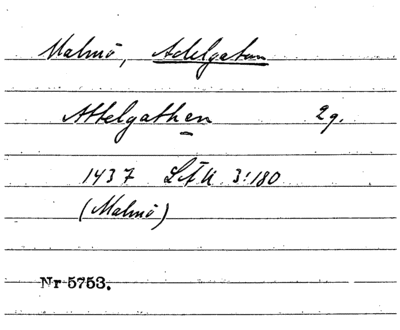 Malmö, Adelgatan
Attelgathen 2g.
1437 LÄU 3:180
(Malmö)
Nr 5753.